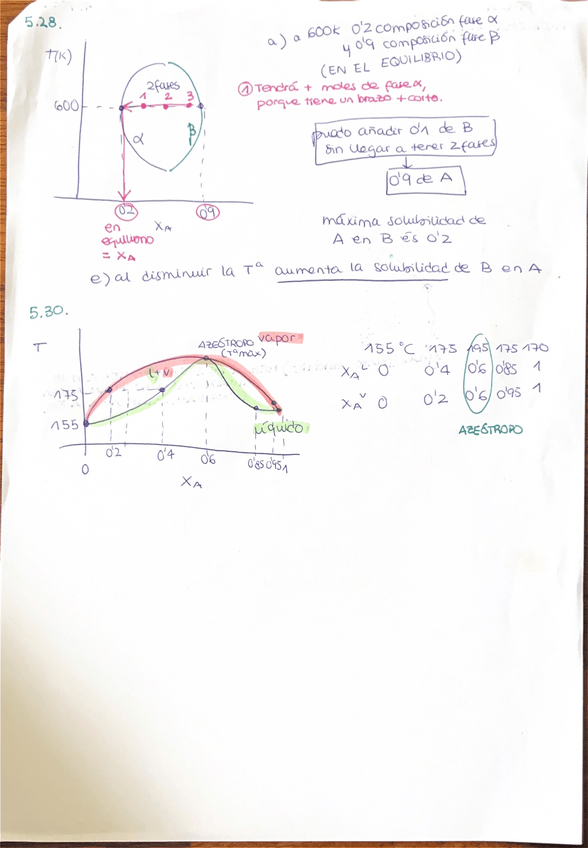 5.28.
a) a 600K 0'2 composición fase α
y 0'9 composición fase β
(EN EL EQUILIBRIO)
T(K)
2 fases
1 2 3
600
α
β
0'2
XA
0'9
en
equilibrio
= XA
① Tendrá + moles de fase α,
porque tiene un brazo + corto.
puedo añadir 0'1 de B
sin llegar a tener 2 fases
0'9 de A
máxima solubilidad de
A en B és 0'2
e) al disminuir la Tª aumenta la solubilidad de B en A
5.30.
T
AZEÓTROPO
(Tª max)
vapor
L+V
175
155
líquido
0
0'2
0'4
0'6
0'85
0'95
1
XA
155 °C 175 195 175 170
XA L 0 0'4 0'6 0'85 1
XA V 0 0'2 0'6 0'95 1
AZEÓTROPO